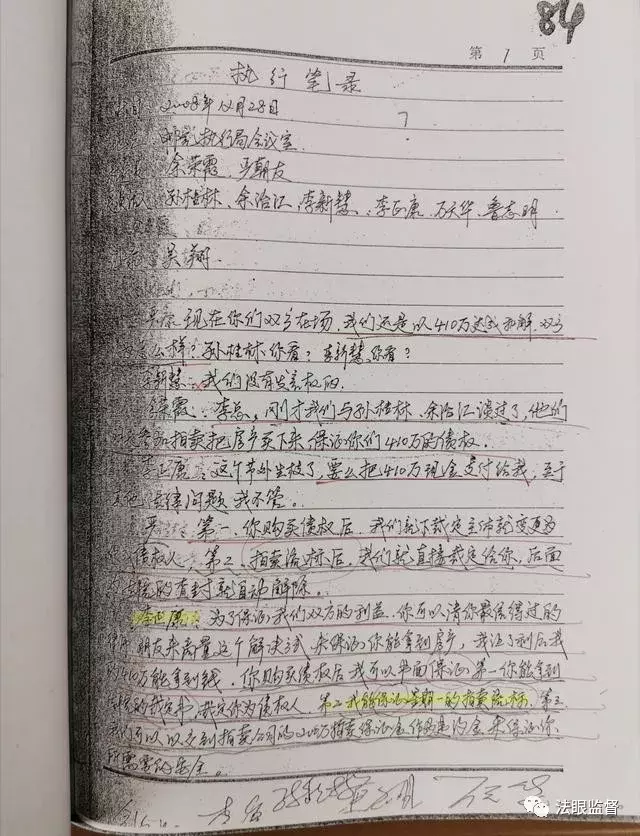 84
第 1 页
执行笔录
2008年12月28日
执行局会议室
余荣霞、严朝友
孙桂林、余治江、李新慧、李正康、万天华、鲁志明
吴翔
现在你们双方在场,我们还是以410万达成和解,双方
怎么样?孙桂林你看?李新慧你看?
李新慧:我们没有发言权的。
余荣霞:李总,刚才我们与孙桂林、余治江谈过了,他们
参加拍卖把房产买下来,保证你们410万的债权.
李正康:这个节外生枝了,要么把410万现金支付给我,至于
其他法律问题我不管。
严:第一、你购买债权后,我们就下裁定主体就变更为
债权人,第二、拍卖流标后,我们就直接裁定给你,后面
的查封就自动解除。
李正康:为了保证我们双方的利益,你可以请你最信得过的
朋友来商量这个解决方式,来保证你能拿到房产,我
410万能拿到钱.你购买债权后我可以书面保证第一你能拿到
的裁定书,裁定你为债权人,第二我能保证星期一的拍卖流标,第三
我们可以以交到拍卖公司的200万拍卖保证金作为违约金来保证你
所需要的安全。
法眼监督